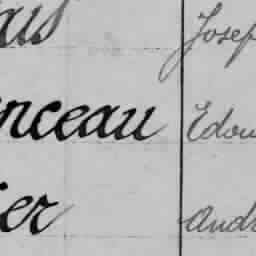 ais Josep
nceau Edou
ier André